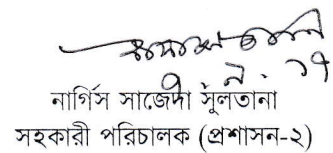 নার্গিস সাজেদা সুলতানা
সহকারী পরিচালক (প্রশাসন-২)